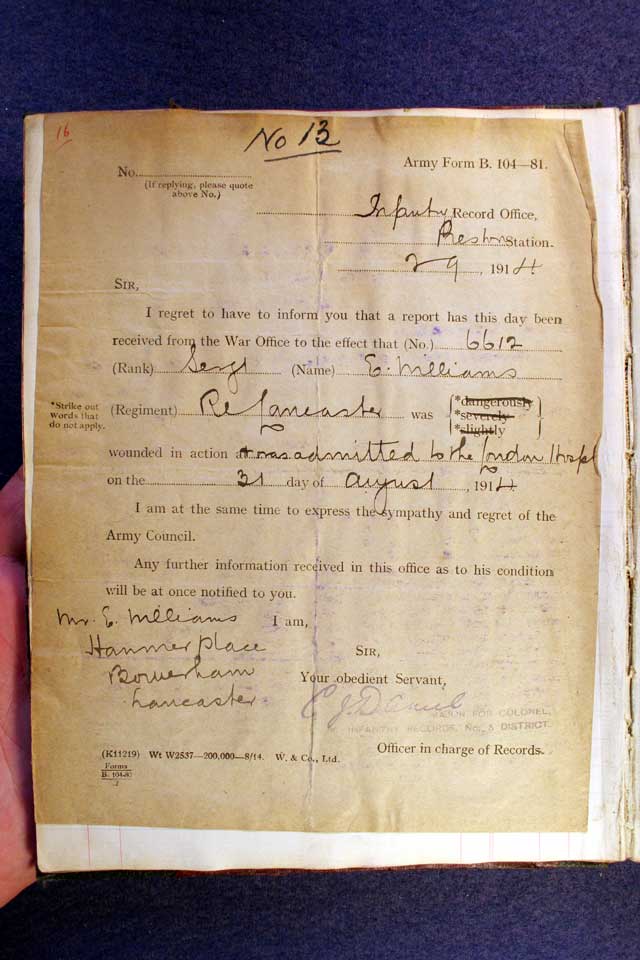 16
No 13
Army Form B. 104—81.
No.
(If replying, please quote
above No.)
Infantry Record Office,
Preston Station.
2 9, 1914
SIR,
I regret to have to inform you that a report has this day been
received from the War Office to the effect that (No.) 6612
(Rank) Sergt (Name) E. Williams
*Strike out
words that
do not apply.
(Regiment) Rl Lancaster was
*dangerously
*severely
*slightly
wounded in action & was admitted to the London Hospl
on the 31 day of August, 1914
I am at the same time to express the sympathy and regret of the
Army Council.
Any further information received in this office as to his condition
will be at once notified to you.
Mr. E. Williams I am,
Hanmer Place SIR,
Bowerham Your obedient Servant,
Lancaster
MAJOR FOR COLONEL,
INFANTRY RECORDS, No. DISTRICT.
Officer in charge of Records.
(K11219) Wt W2537—200,000—8/14. W. & Co., Ltd.
Forms
B. 104-80